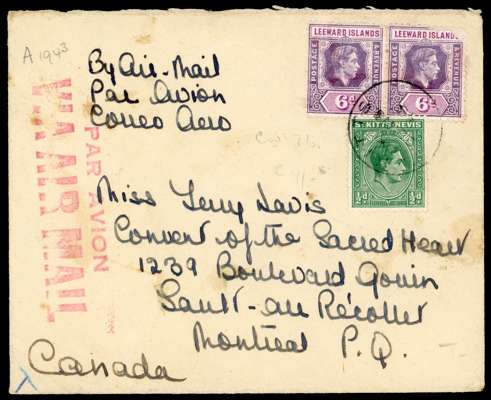 A 1943
By Air-Mail
Par Avion
Correo Aero
LEEWARD ISLANDS
POSTAGE
& REVENUE
6d
LEEWARD ISLANDS
POSTAGE
& REVENUE
6d
ST KITTS-NEVIS
½d
½d
PAR AVION
VIA AIR MAIL
Miss Terry Davis
Convent of the Sacred Heart
1239 Boulevard Gouin
Sault-au Récollet
Montreal P.Q.
Canada
T